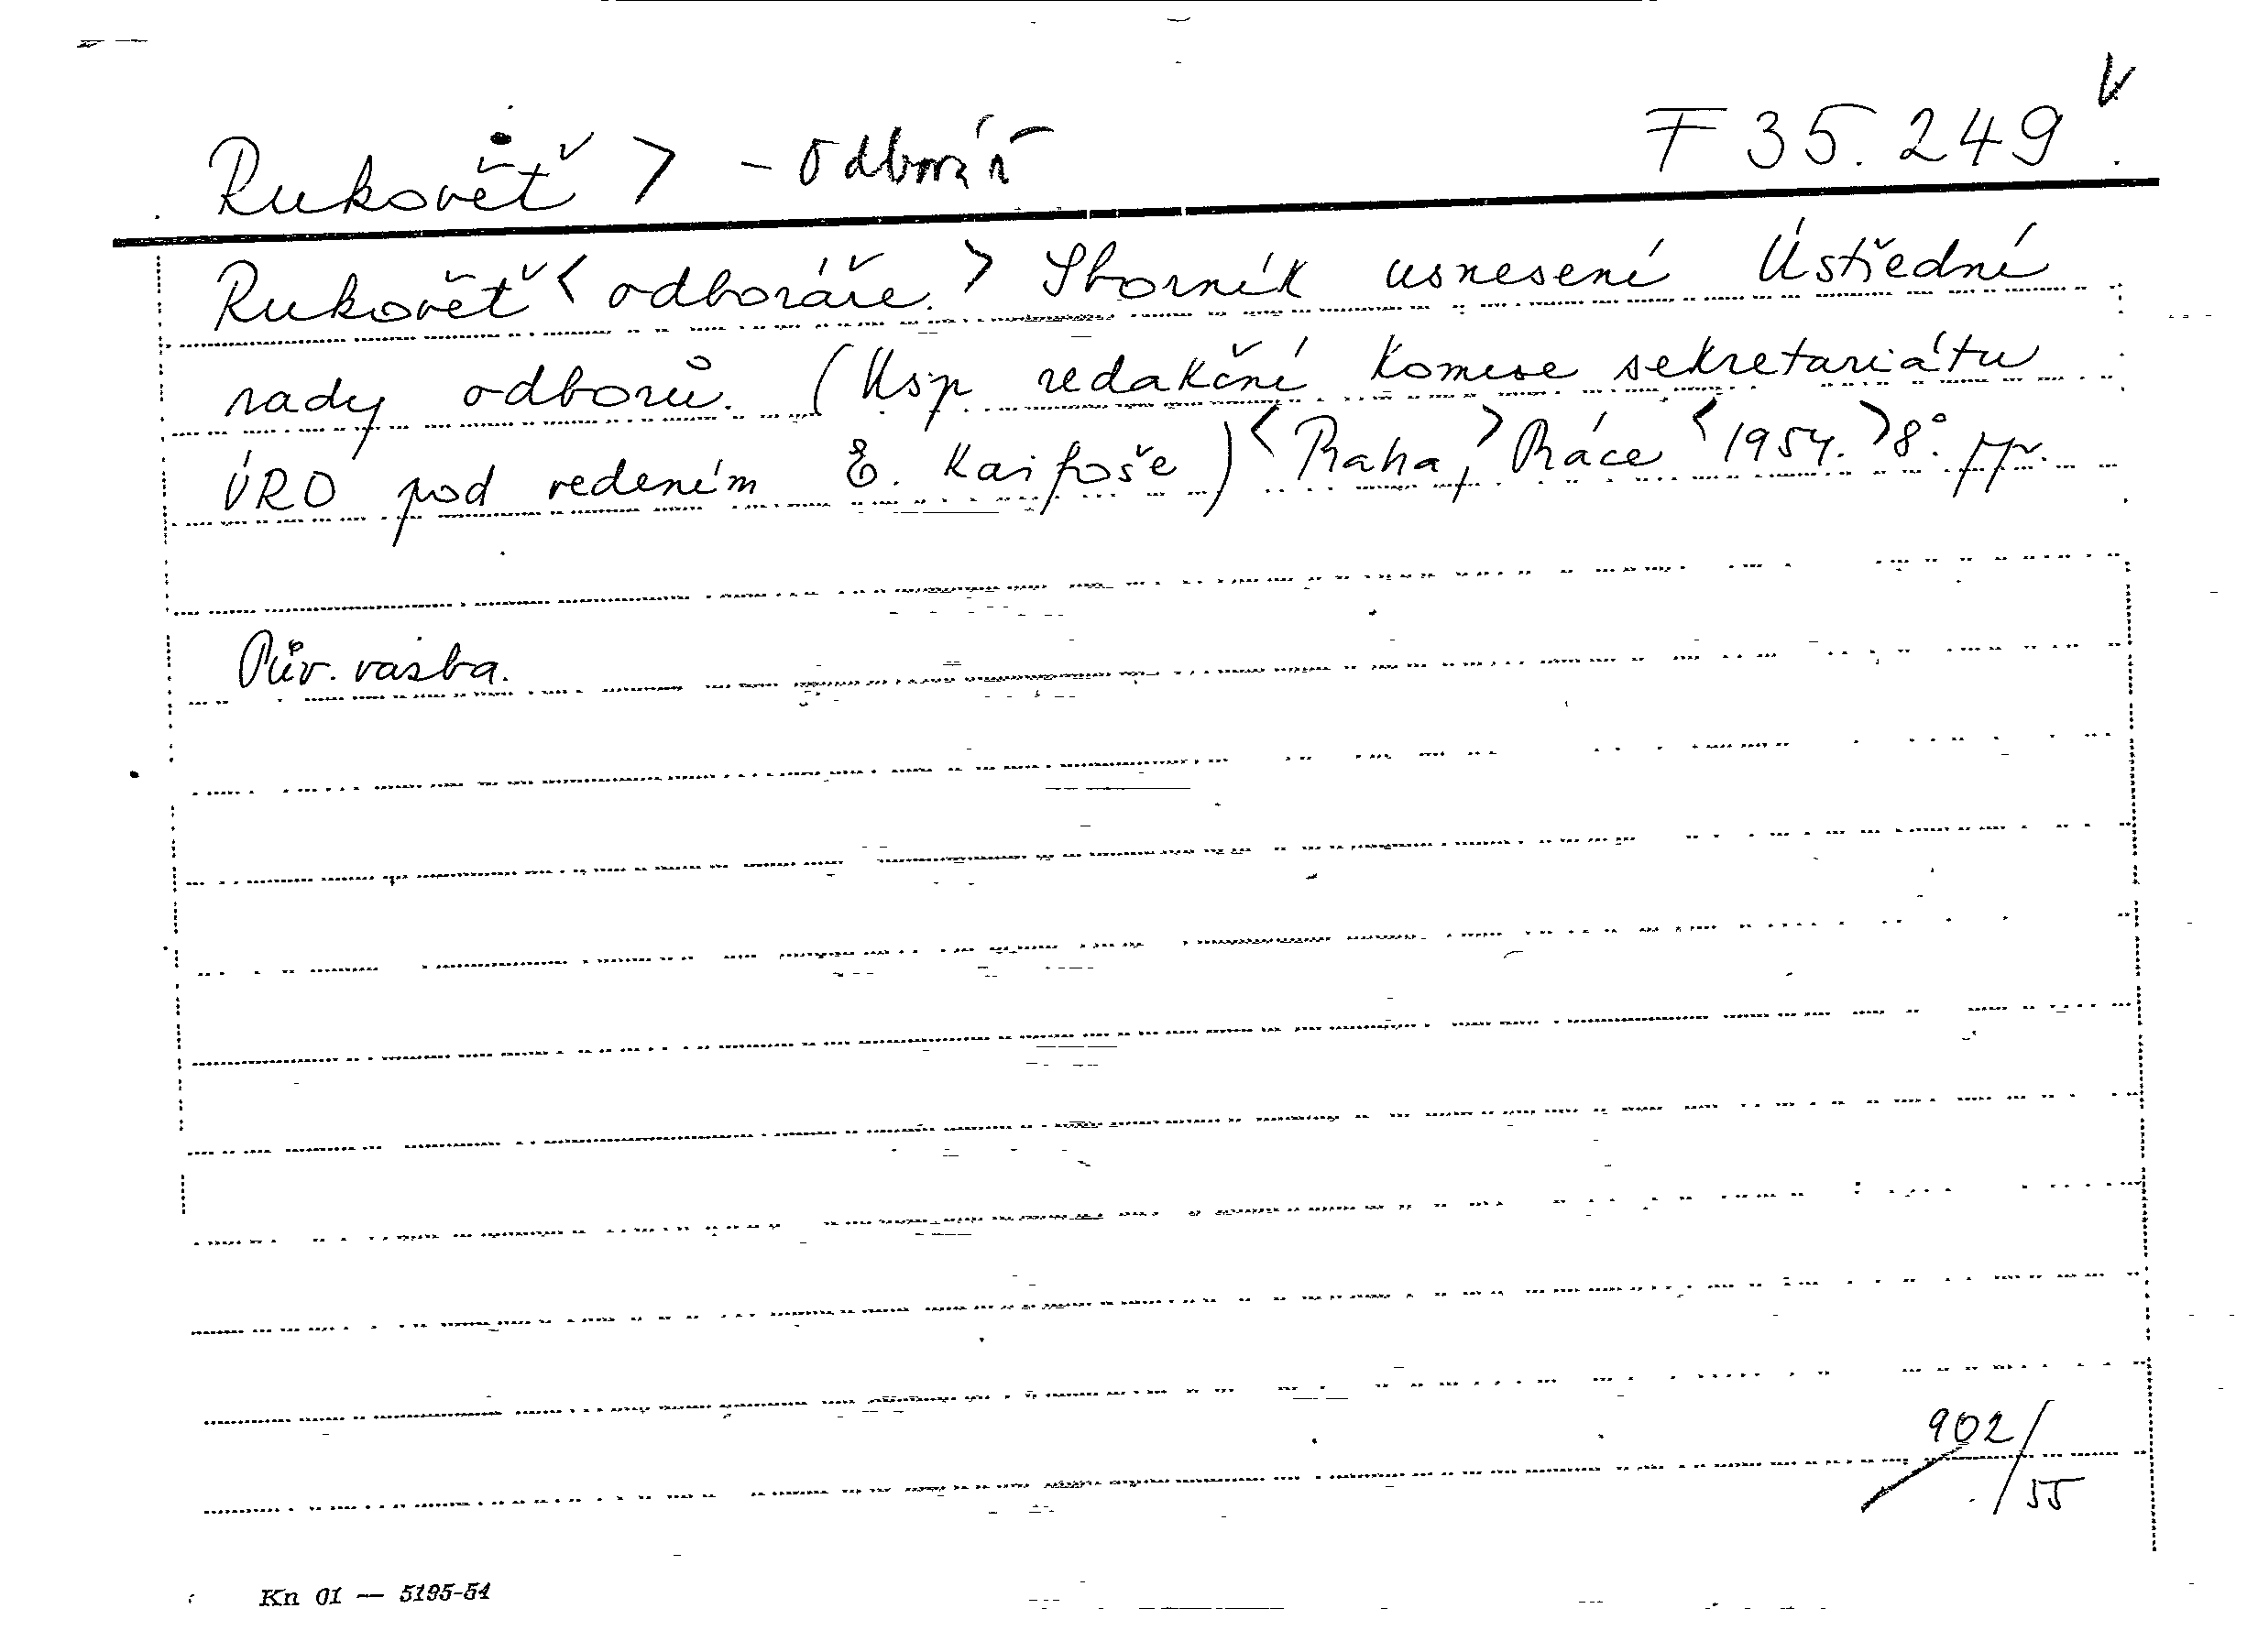 Rukověť > - Odborář F 35.249 V
Rukověť < odboráře. > Sborník usnesení Ústřední
rady odborů. (Usp redakční komise sekretariátu
ÚRO pod vedením E. Kaifoše) < Praha, > Práce < 1954. > 8°. ppr.
Pův. vazba.
902/
/55
Kn 01 — 5195-54